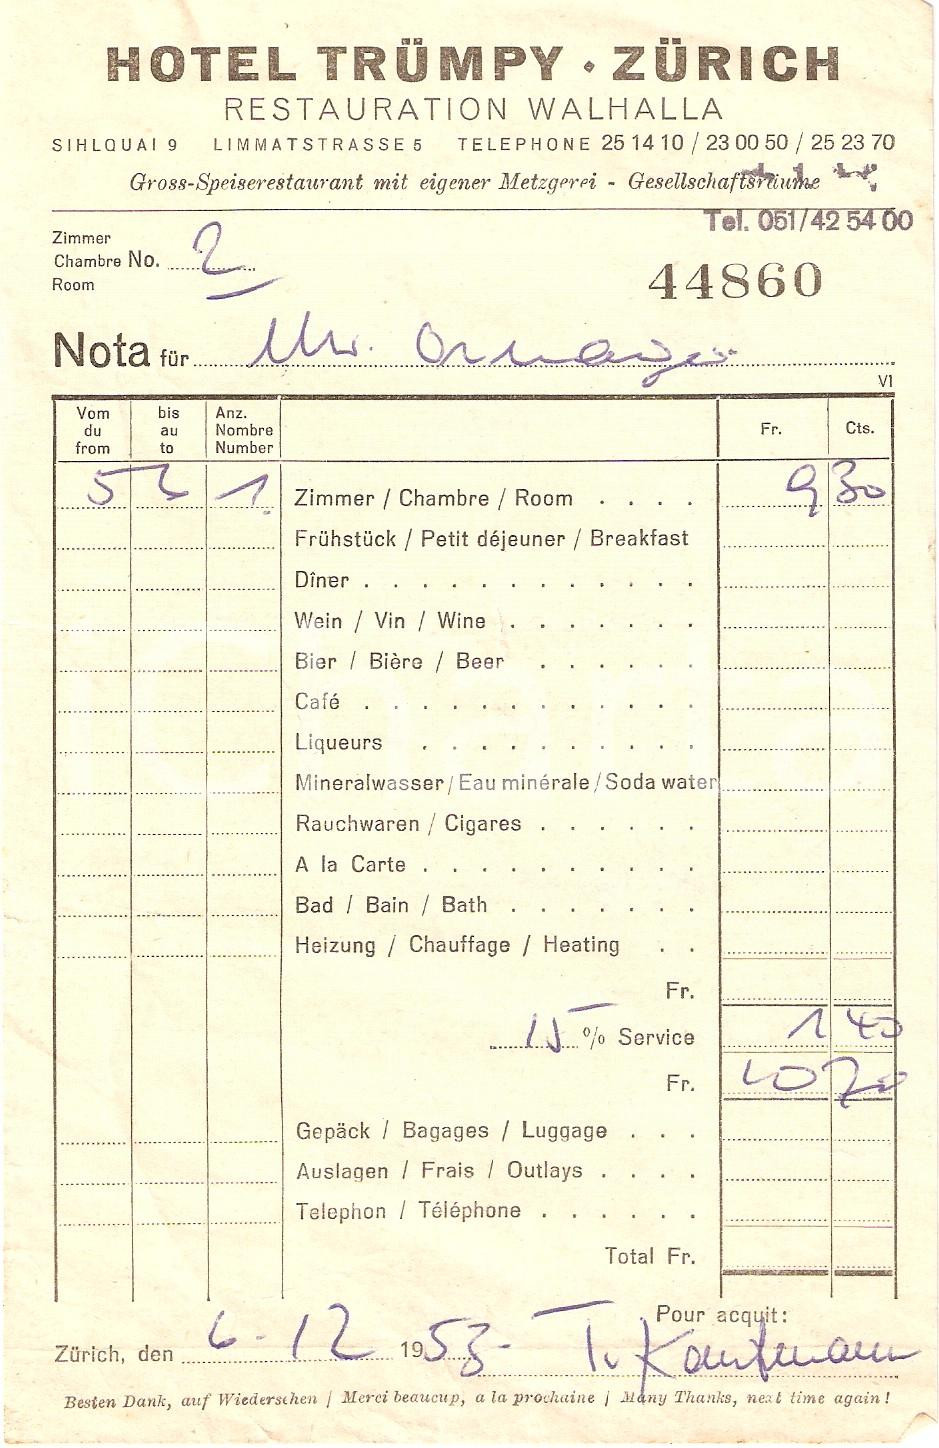 HOTEL TRÜMPY · ZÜRICH
RESTAURATION WALHALLA
SIHLQUAI 9 LIMMATSTRASSE 5 TELEPHONE 25 14 10 / 23 00 50 / 25 23 70
Gross-Speiserestaurant mit eigener Metzgerei - Gesellschaftsräume
Tel. 051/42 54 00
Zimmer
Chambre No. 2
Room
44860
Nota für Mr.
V1
Vom bis Anz. Fr. Cts.
du au Nombre
from to Number
5 6 1. Zimmer / Chambre / Room . . . . 9 30
Frühstück / Petit déjeuner / Breakfast
Dîner . . . . . . . . . . . .
Wein / Vin / Wine . . . . . . .
Bier / Bière / Beer . . . . . .
Café . . . . . . . . . . . .
Liqueurs . . . . . . . . . .
Mineralwasser / Eau minérale / Soda water
Rauchwaren / Cigares . . . . . .
A la Carte . . . . . . . . . .
Bad / Bain / Bath . . . . . . .
Heizung / Chauffage / Heating . .
Fr.
15 % Service 1 40
Fr. 10 70
Gepäck / Bagages / Luggage . . .
Auslagen / Frais / Outlays . . . .
Telephon / Téléphone . . . . . .
Total Fr.
Pour acquit:
Zürich, den 6. 12 1953. T. Kaufmann
Besten Dank, auf Wiedersehen / Merci beaucup, a la prochaine / Many Thanks, next time again!